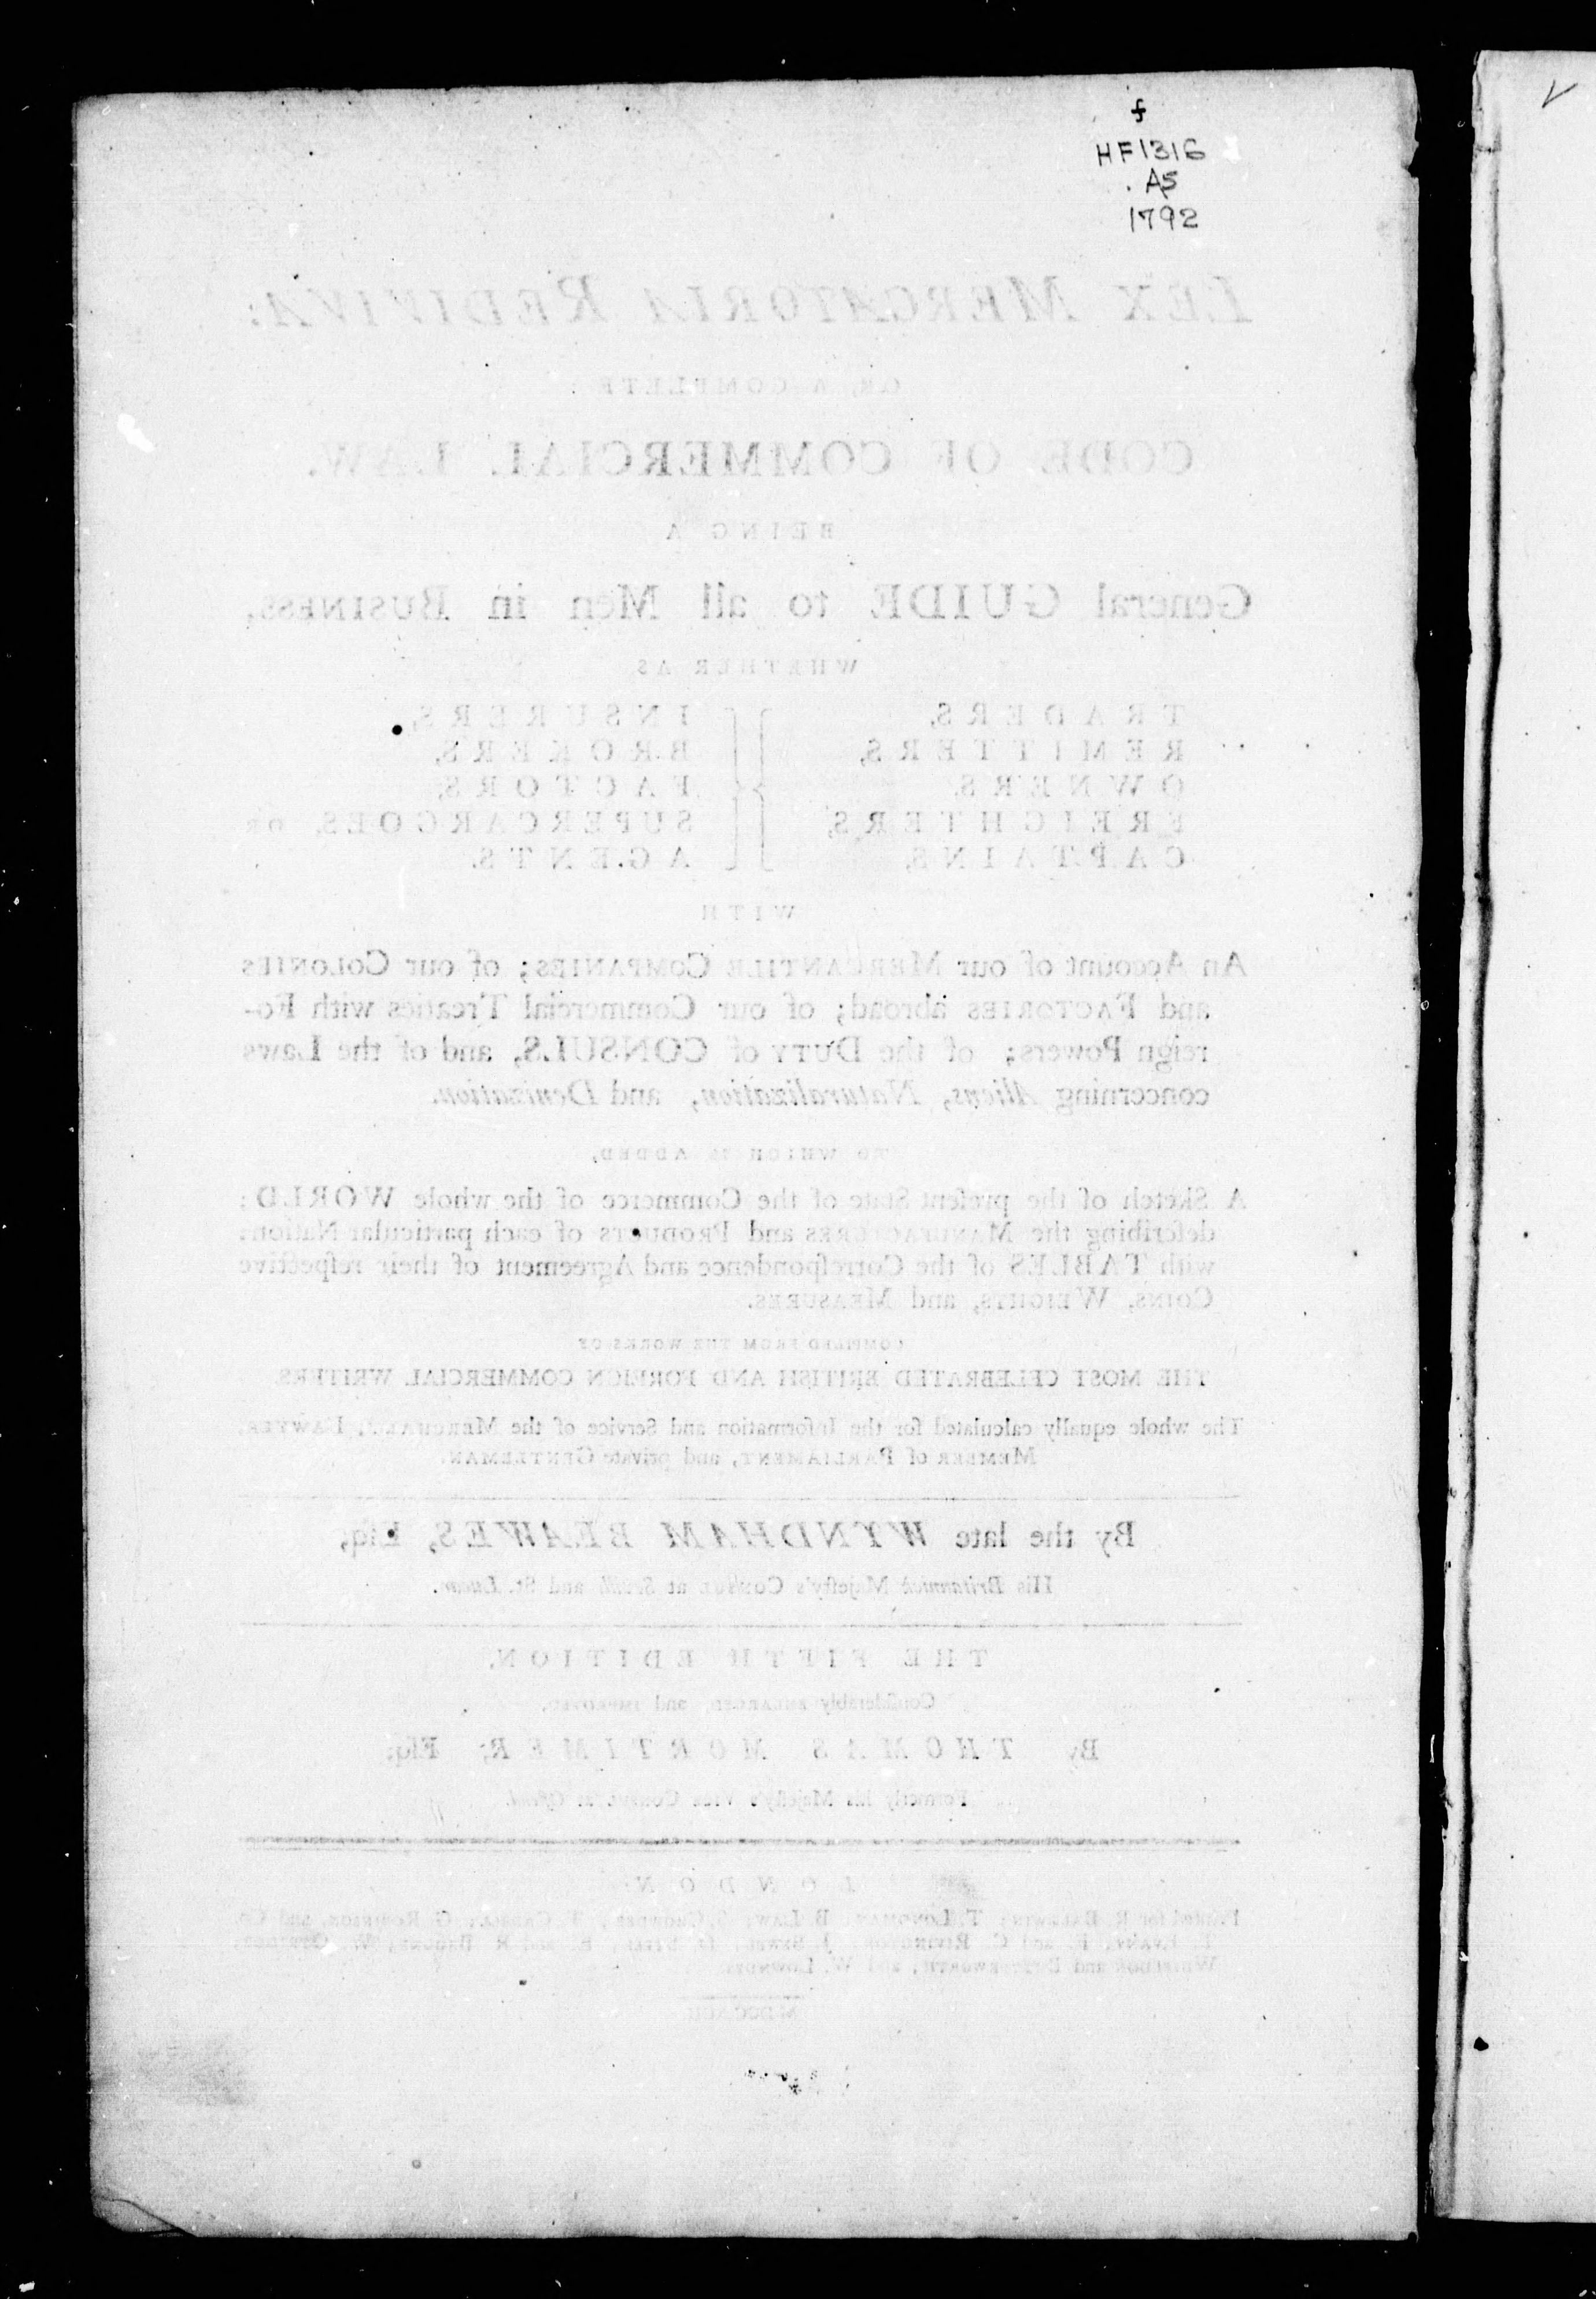 f
HF1316
.A5
1792
LEX MERCATORIA REDIVIVA:
OR, A COMPLETE
CODE OF COMMERCIAL LAW.
BEING A
General GUIDE to all Men in BUSINESS,
WHETHER AS
TRADERS,
REMITTERS,
OWNERS,
FREIGHTERS,
CAPTAINS,
INSURERS,
BROKERS,
FACTORS,
SUPERCARGOES, OR
AGENTS.
WITH
An Account of our MERCANTILE COMPANIES; of our COLONIES
and FACTORIES abroad; of our Commercial Treaties with Fo-
reign Powers; of the DUTY of CONSULS, and of the Laws
concerning Aliens, Naturalization, and Denization.
TO WHICH IS ADDED,
A Sketch of the preſent State of the Commerce of the whole WORLD;
deſcribing the MANUFACTURES and PRODUCTS of each particular Nation:
with TABLES of the Correſpondence and Agreement of their reſpective
COINS, WEIGHTS, and MEASURES.
COMPILED FROM THE WORKS OF
THE MOST CELEBRATED BRITISH AND FOREIGN COMMERCIAL WRITERS.
The whole equally calculated for the Information and Service of the MERCHANT, LAWYER,
MEMBER of PARLIAMENT, and private GENTLEMAN.
By the late WYNDHAM BEAWES, Eſq;
His Britannick Majeſty's CONSUL at Seville and St. Lucar.
THE FIFTH EDITION,
Conſiderably ENLARGED, and IMPROVED,
By THOMAS MORTIMER, Eſq;
Formerly his Majeſty's VICE CONSUL at Oſtend.
LONDON
Printed for R. BALDWIN; T. LONGMAN; B. LAW; S. CROWDER; T. CADELL; G. ROBINSON, and Co.
T. EVANS; F. and C. RIVINGTON; J. SEWELL;
and W. LOWNDES.